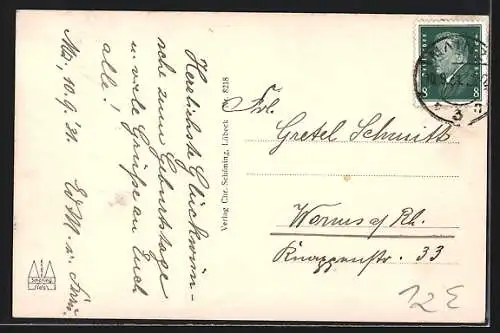 Herzlichste Glückwün-
sche zum Geburtstage
u. viele Grüße an Euch
alle!
10.9.31.
Verlag Chr. Schöning, Lübeck
8218
Frl.
Gretel Schmitt
Worms a/Rh.
Knaggenstr. 33
8 8
12E